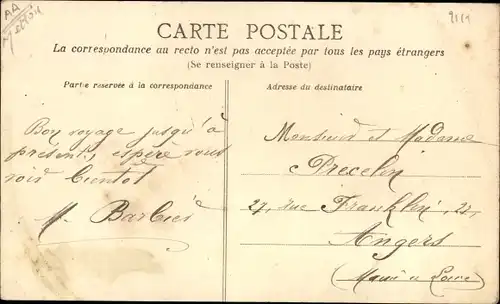 AA
CARTE POSTALE
La correspondance au recto n'est pas acceptée par tous les pays étrangers
(Se renseigner à la Poste)
Partie réservée à la correspondance
Bon voyage jusqu'à
présent, espère vous
voir bientot
M. Barbier
Adresse du destinataire
Monsieur et Madame
Precelin
27, rue Franklin, 27,
Angers
(Maine et Loire)